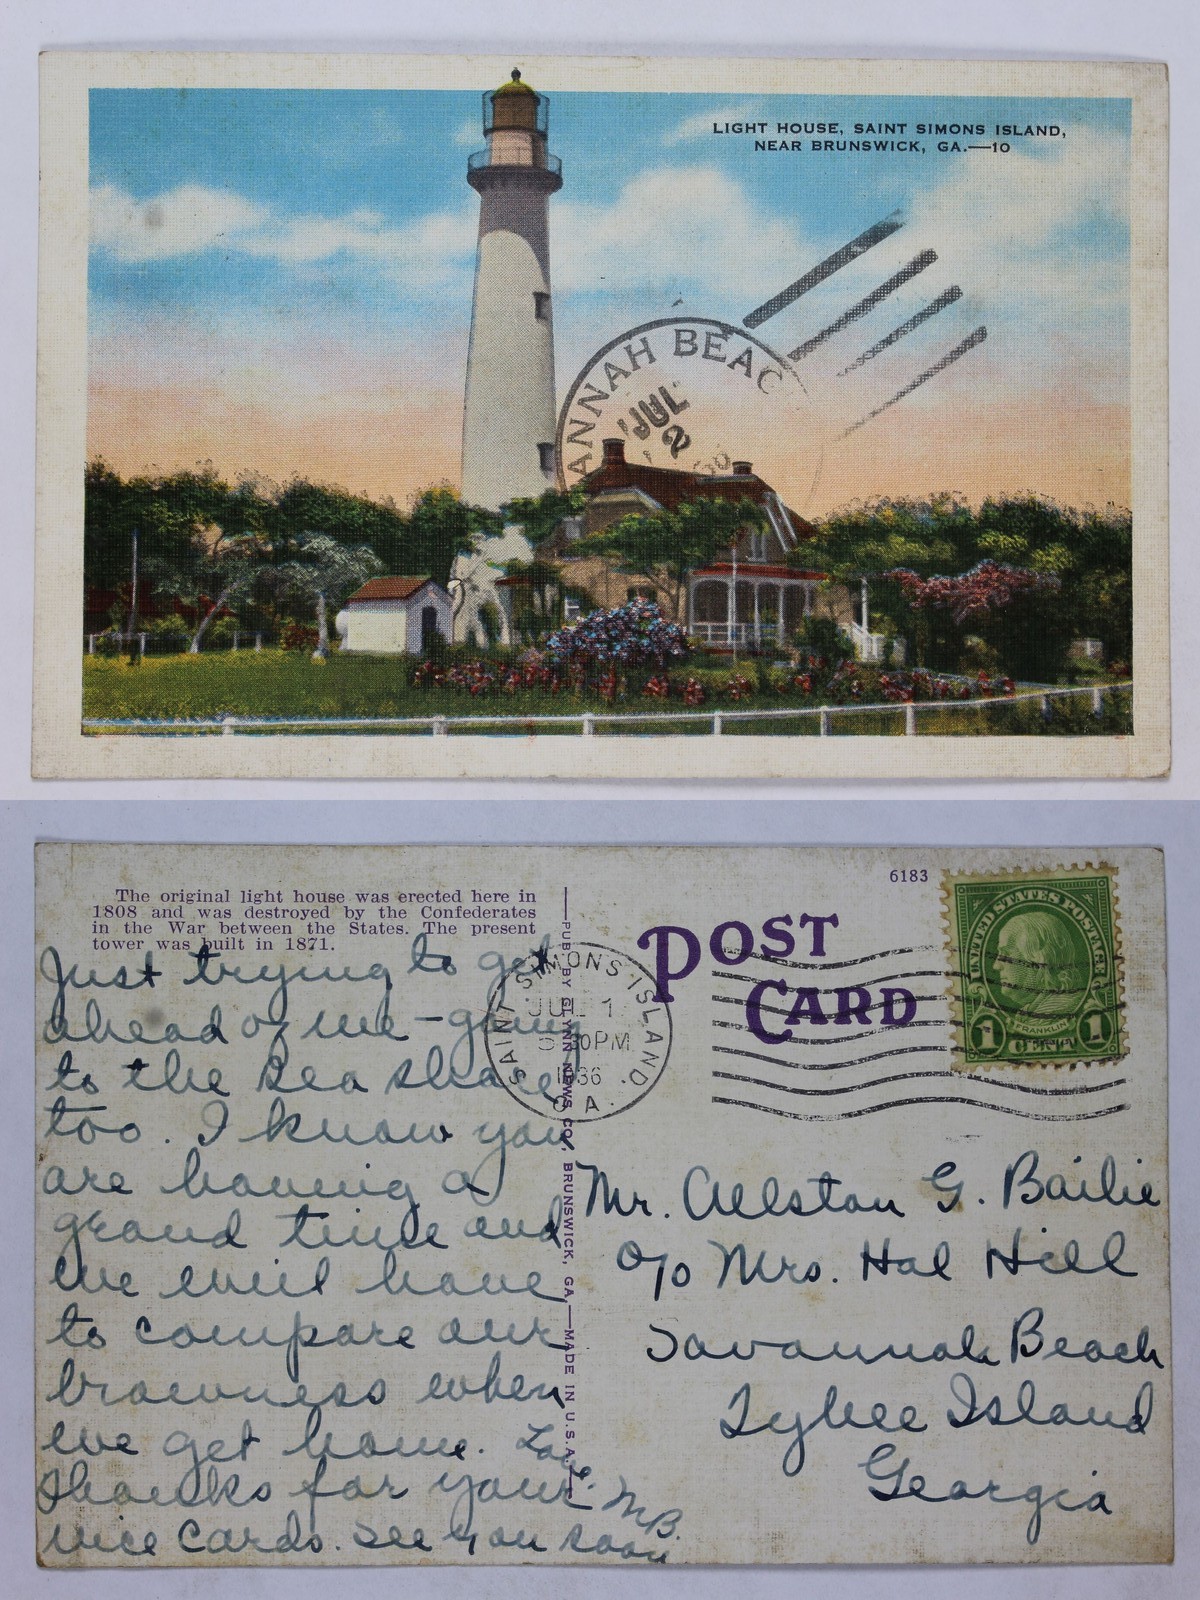 LIGHT HOUSE, SAINT SIMONS ISLAND,
NEAR BRUNSWICK, GA.—10
ANNAH BEAC
JUL
2
The original light house was erected here in
1808 and was destroyed by the Confederates
in the War between the States. The present
tower was built in 1871.
Just trying to get
ahead of me - going
to the sea shore
too. I know you
are having a
grand time and
we will have
to compare our
brownness when
we get home. Love.
Thanks for your M.B.
nice cards. See you soon
PUB. BY GLYNN NEWS CO., BRUNSWICK, GA.—MADE IN U.S.A.
SAINT SIMONS ISLAND
JUL 1
5 30PM
1936
GA.
6183
POST
CARD
UNITED STATES POSTAGE
FRANKLIN
1 CENT 1
Mr. Allston G. Bailie
c/o Mrs. Hal Hill
Savannah Beach
Tybee Island
Georgia